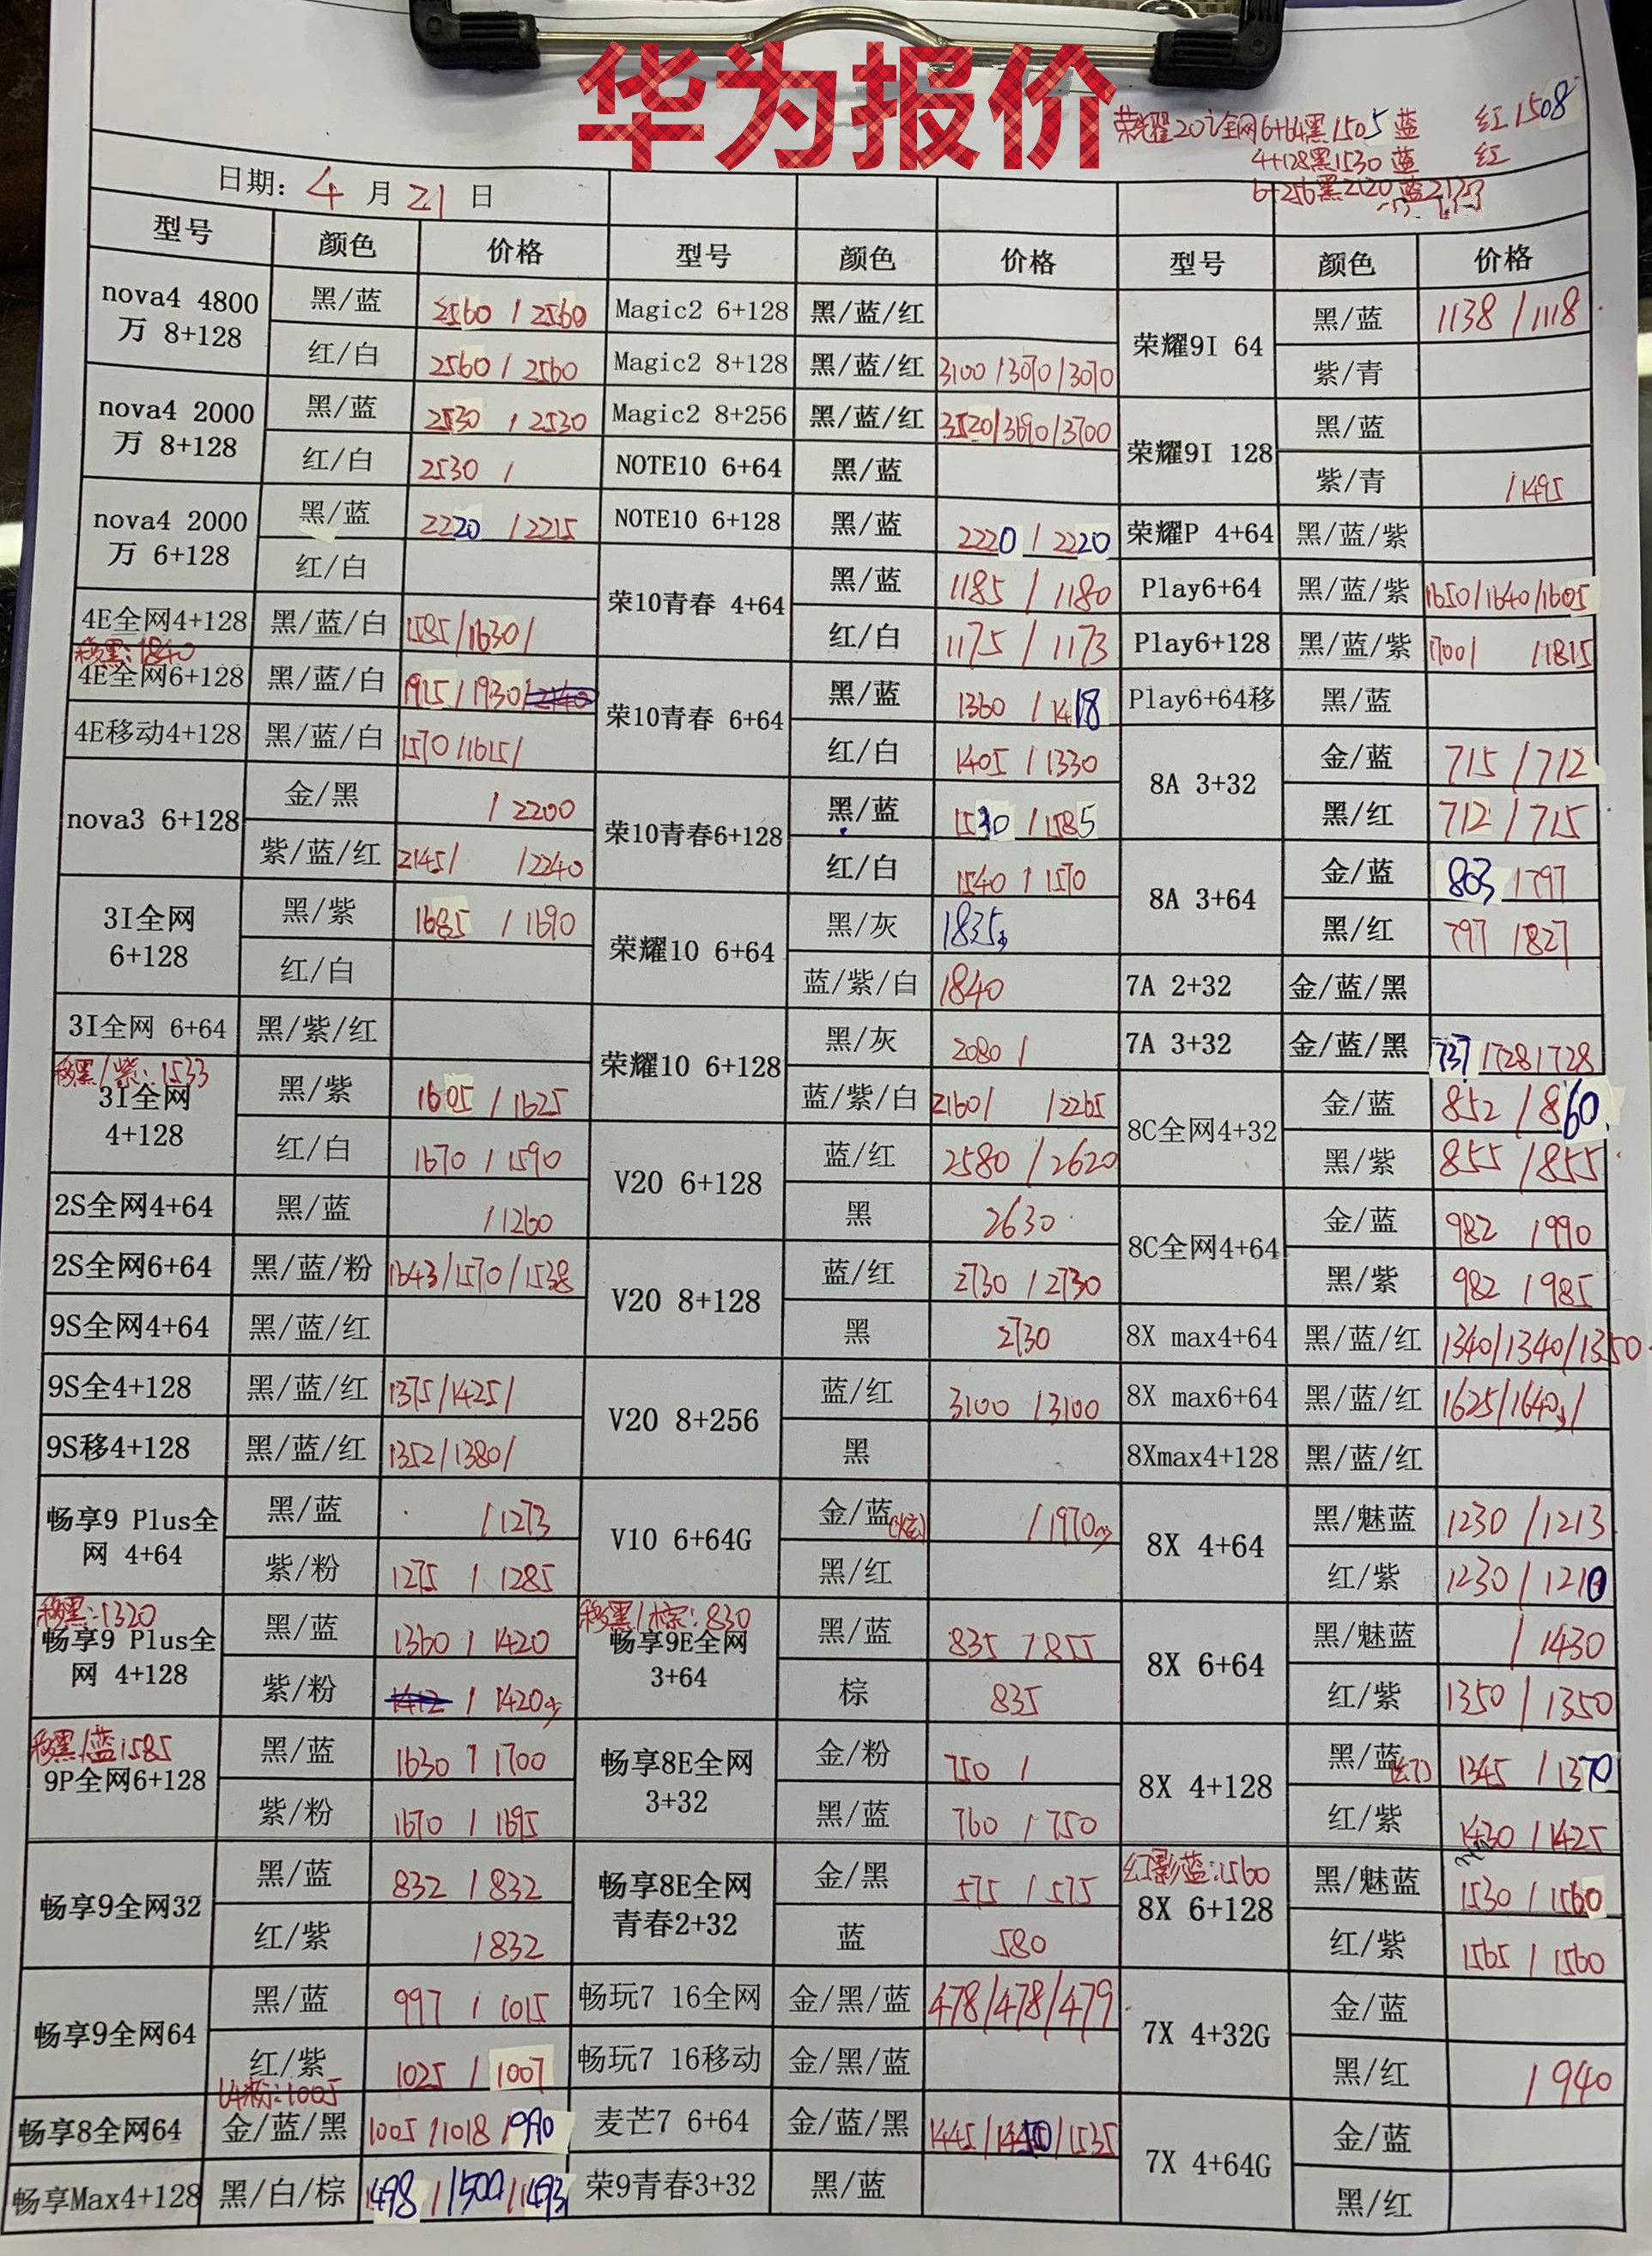 华为报价
荣耀20i全网6+64黑1505 蓝 红1508
4+128黑1530 蓝 红
6+256黑2120 蓝2123
日期: 4 月 21 日
型号 颜色 价格 型号 颜色 价格 型号 颜色 价格
nova4 4800万 8+128 黑/蓝 2560 / 2560 Magic2 6+128 黑/蓝/红 荣耀9I 64 黑/蓝 1138 / 1118
红/白 2560 / 2560 Magic2 8+128 黑/蓝/红 3100 / 3070 / 3070 紫/青
nova4 2000万 8+128 黑/蓝 2530 / 2530 Magic2 8+256 黑/蓝/红 3520/3690/3700 荣耀9I 128 黑/蓝
红/白 2530 / NOTE10 6+64 黑/蓝 紫/青 / 1495
nova4 2000万 6+128 黑/蓝 2220 / 2215 NOTE10 6+128 黑/蓝 2220 / 2220 荣耀P 4+64 黑/蓝/紫
红/白 荣10青春 4+64 黑/蓝 1185 / 1180 Play6+64 黑/蓝/紫 1650/1640/1605
4E全网4+128 黑/蓝/白 1585/1630/ 红/白 1175 / 1173 Play6+128 黑/蓝/紫 1700/ /1815
移黑:1840
4E全网6+128 黑/蓝/白 1915/1930/ 荣10青春 6+64 黑/蓝 1360 / 1418 Play6+64移 黑/蓝
4E移动4+128 黑/蓝/白 1570/1615/ 红/白 1405 / 1330 8A 3+32 金/蓝 715 / 712
nova3 6+128 金/黑 / 2200 荣10青春6+128 黑/蓝 1530 / 1585 黑/红 712 / 715
紫/蓝/红 2145/ /2240 红/白 1540 / 1570 8A 3+64 金/蓝 803 / 797
3I全网 6+128 黑/紫 1685 / 1690 荣耀10 6+64 黑/灰 1835 黑/红 797 / 827
红/白 蓝/紫/白 1840 7A 2+32 金/蓝/黑
3I全网 6+64 黑/紫/红 荣耀10 6+128 黑/灰 2080 / 7A 3+32 金/蓝/黑 737 / 728 / 728
移黑/紫:1533
3I全网 4+128 黑/紫 1605 / 1625 蓝/紫/白 2160/ /2265 8C全网4+32 金/蓝 852 / 860
红/白 1670 / 1590 V20 6+128 蓝/红 2580 / 2620 黑/紫 855 / 855
2S全网4+64 黑/蓝 / 1260 黑 2630 8C全网4+64 金/蓝 982 / 990
2S全网6+64 黑/蓝/粉 1643/1570/1538 V20 8+128 蓝/红 2730 / 2730 黑/紫 982 / 985
9S全网4+64 黑/蓝/红 黑 2730 8X max4+64 黑/蓝/红 1340/1340/1350
9S全4+128 黑/蓝/红 1375/1425/ V20 8+256 蓝/红 3100 / 3100 8X max6+64 黑/蓝/红 1625/1640/
9S移4+128 黑/蓝/红 1352/1380/ 黑 8Xmax4+128 黑/蓝/红
畅享9 Plus全网 4+64 黑/蓝 / 1273 V10 6+64G 金/蓝 / 1970 8X 4+64 黑/魅蓝 1230 / 1213
紫/粉 1275 / 1285 黑/红 红/紫 1230 / 1210
移黑:1320 移黑/棕:830
畅享9 Plus全网 4+128 黑/蓝 1360 / 1420 畅享9E全网 3+64 黑/蓝 835 / 855 8X 6+64 黑/魅蓝 / 1430
紫/粉 1412 / 1420 棕 835 红/紫 1350 / 1350
移黑/蓝1585
9P全网6+128 黑/蓝 1630 / 1700 畅享8E全网 3+32 金/粉 750 / 8X 4+128 黑/蓝 1345 / 1370
紫/粉 1670 / 1695 黑/蓝 760 / 750 红/紫 1430 / 1425
红影蓝:1560
畅享9全网32 黑/蓝 832 / 832 畅享8E全网 青春2+32 金/黑 575 / 575 8X 6+128 黑/魅蓝 1530 / 1560
红/紫 / 832 蓝 580 红/紫 1565 / 1560
畅享9全网64 黑/蓝 997 / 1015 畅玩7 16全网 金/黑/蓝 478/478/479 7X 4+32G 金/蓝
红/紫 1025 / 1007 畅玩7 16移动 金/黑/蓝 黑/红 / 940
粉:1005
畅享8全网64 金/蓝/黑 1005/1018/990 麦芒7 6+64 金/蓝/黑 1445/1450/1535 7X 4+64G 金/蓝
畅享Max4+128 黑/白/棕 1498/1500/1493 荣9青春3+32 黑/蓝 黑/红